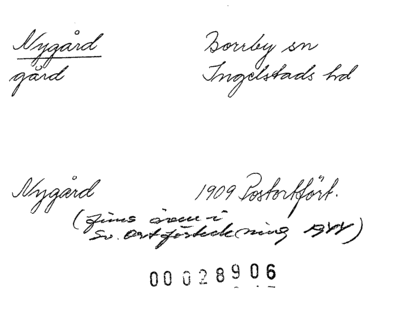 Nygård Borrby sn
gård Ingelstads hd
Nygård 1909 Postortfört.
(finns även i
Sv. Ortförteckning 1944)
00028906